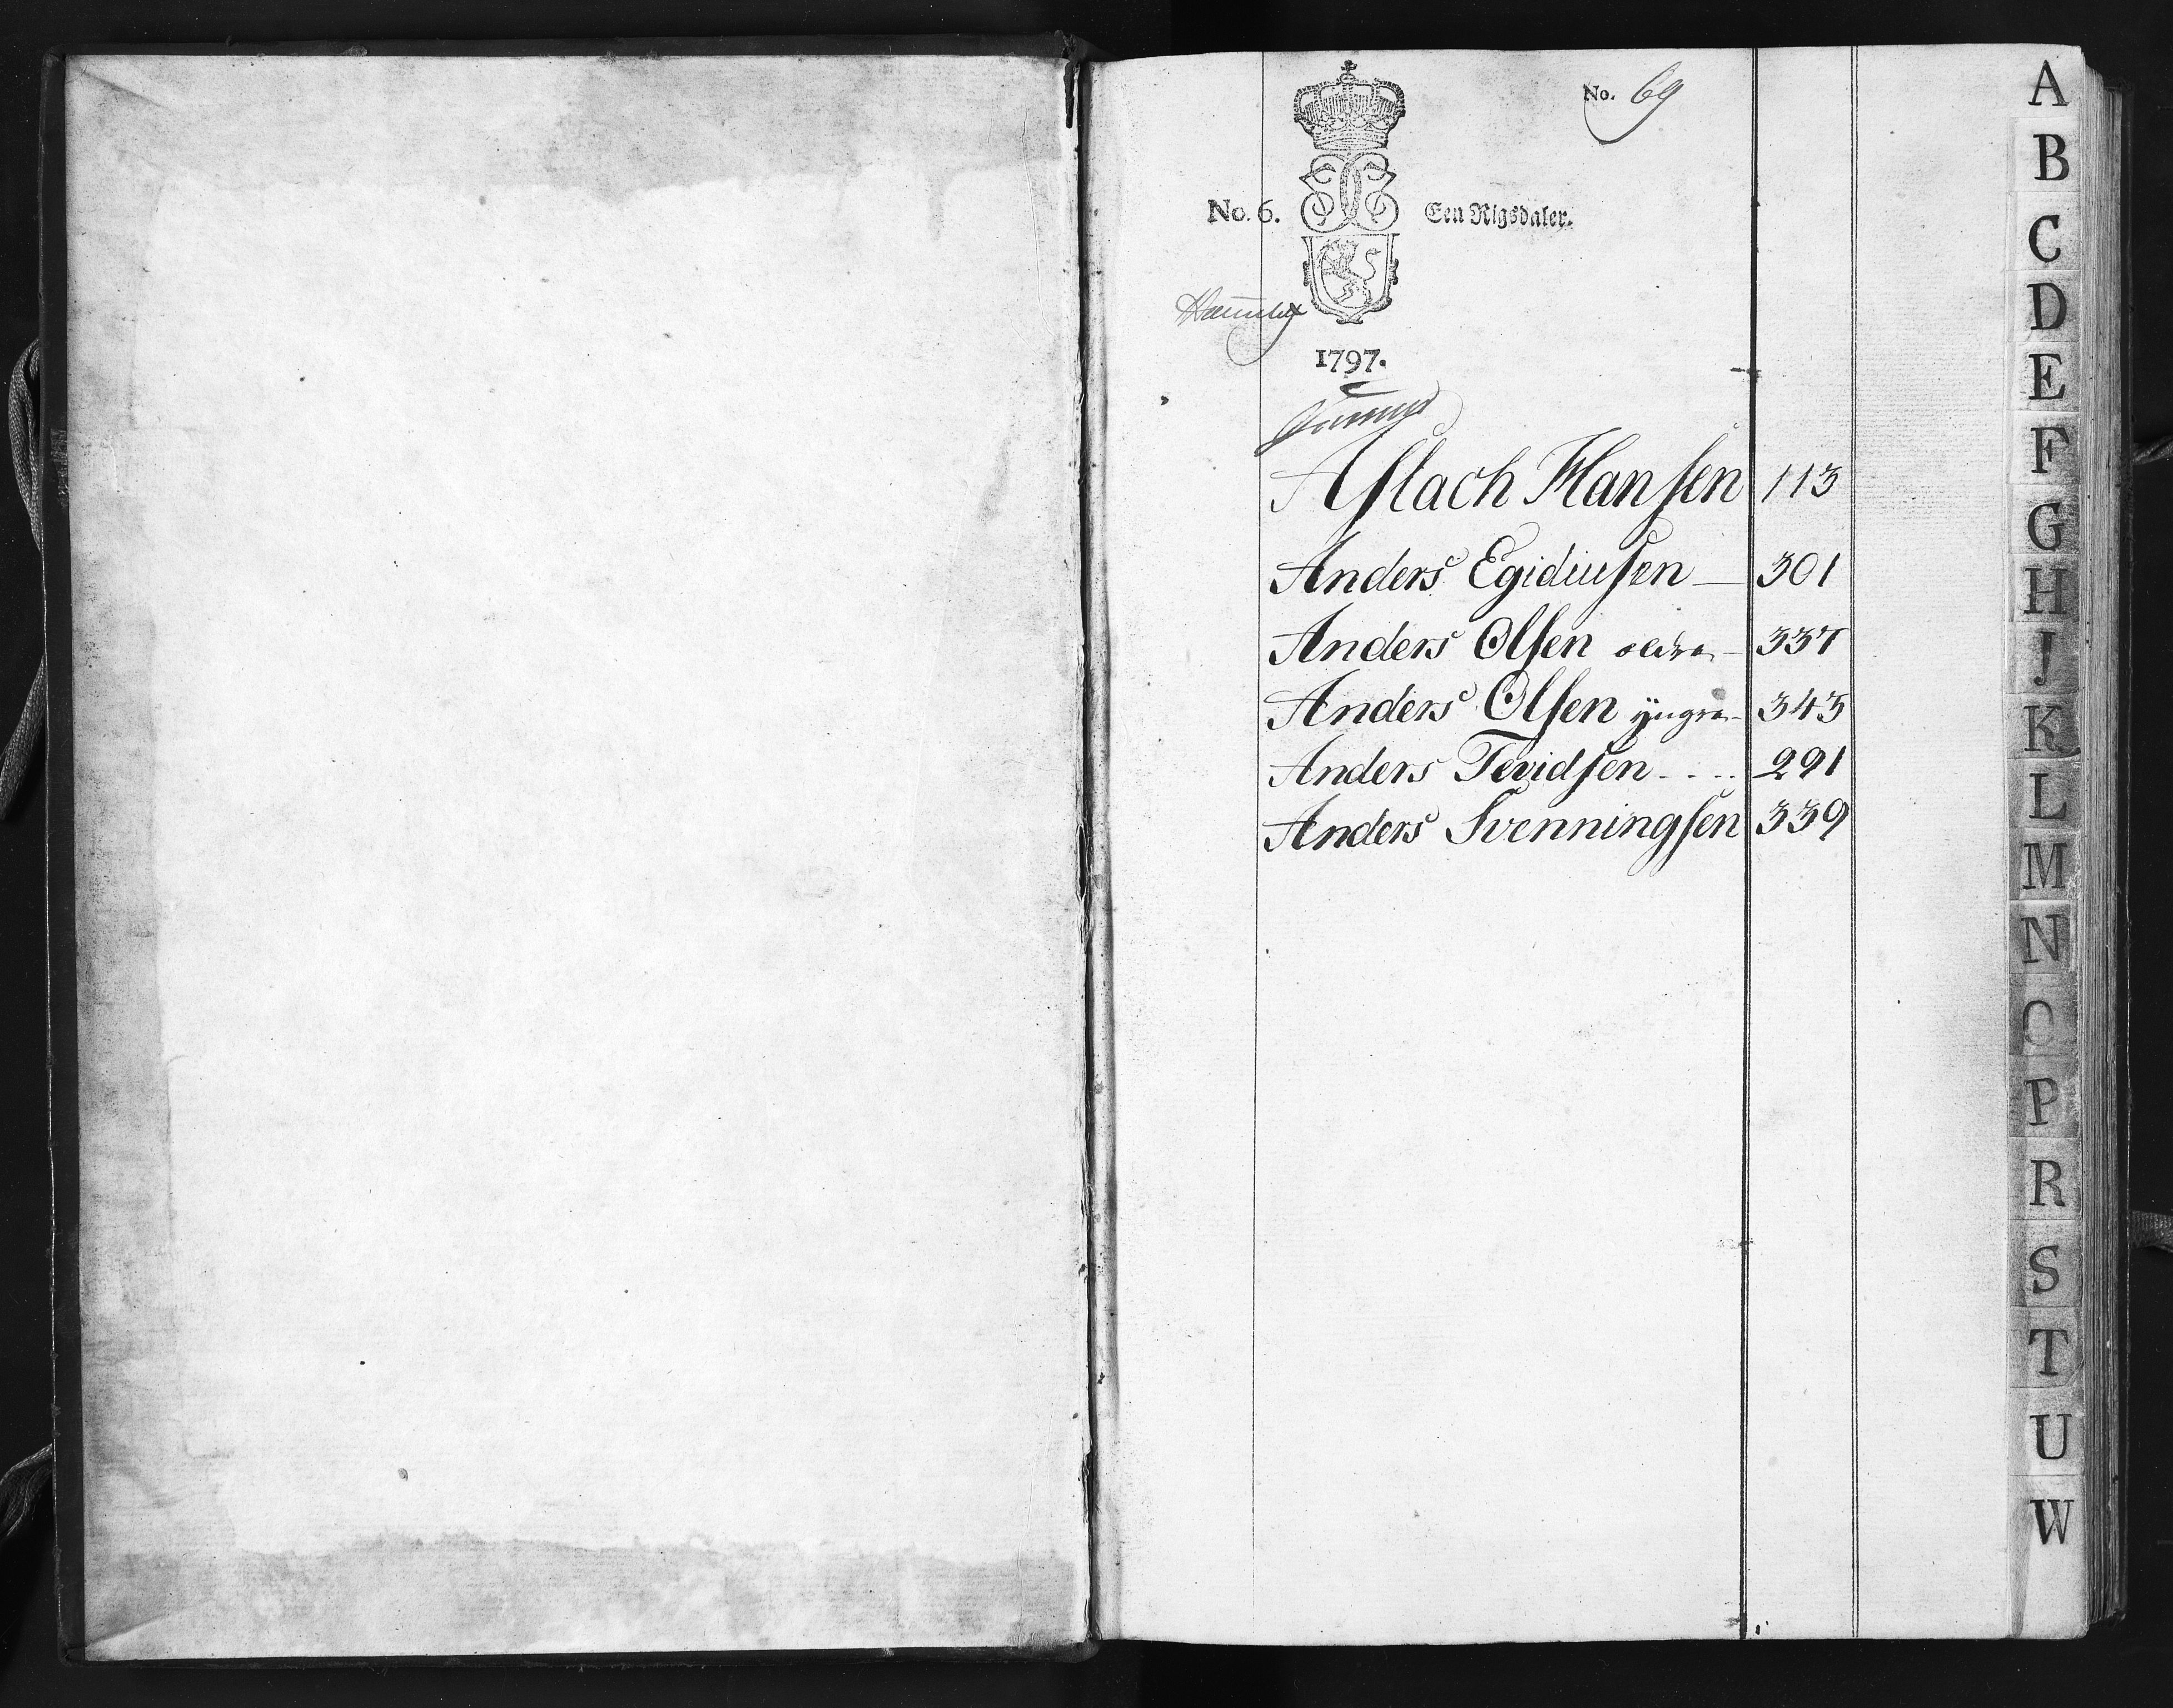 No. 69
No. 6. Een Rigsdaler.
1797.
Aslach Hansen 113
Anders Egidiusen — 301
Anders Olsen ældre — 337
Anders Olsen ÿngre — 343
Anders Tevidsen - - - - 291
Anders Svenningsen 339
A
B
C
D
E
F
G
H
J
K
L
M
N
O
P
R
S
T
U
W